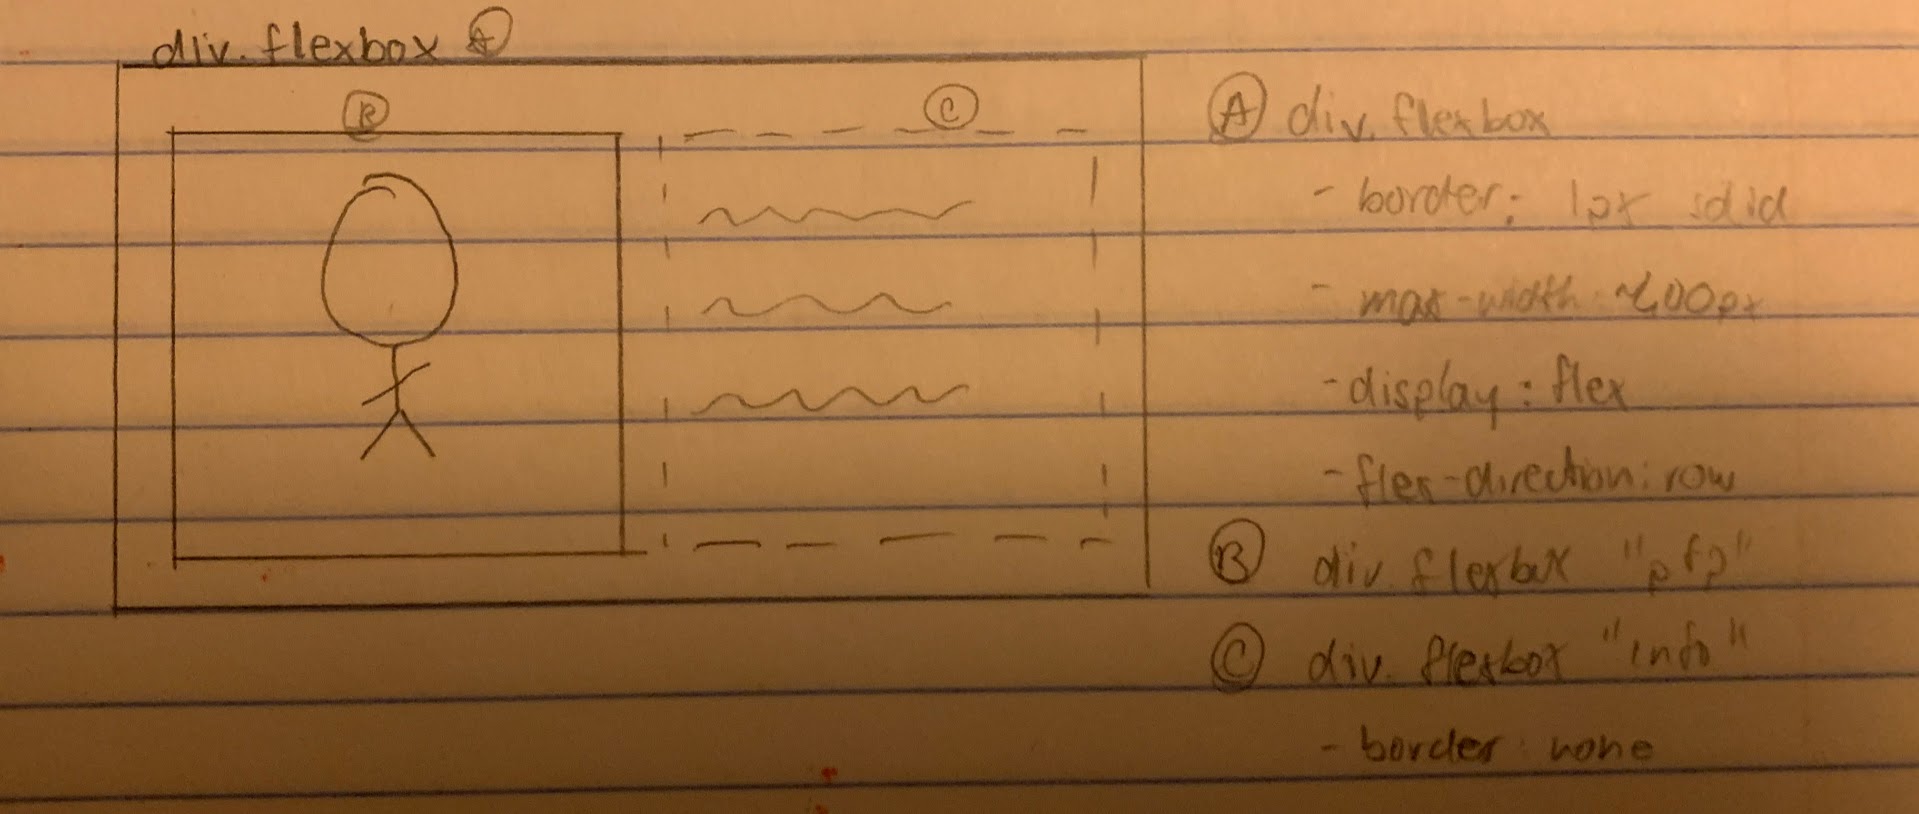 div.flexbox A
B
C
A div.flexbox
- border: 1px solid
- max-width: ~400px
- display: flex
- flex-direction: row
B div.flexbox "pfp"
C div.flexbox "info"
- border: none